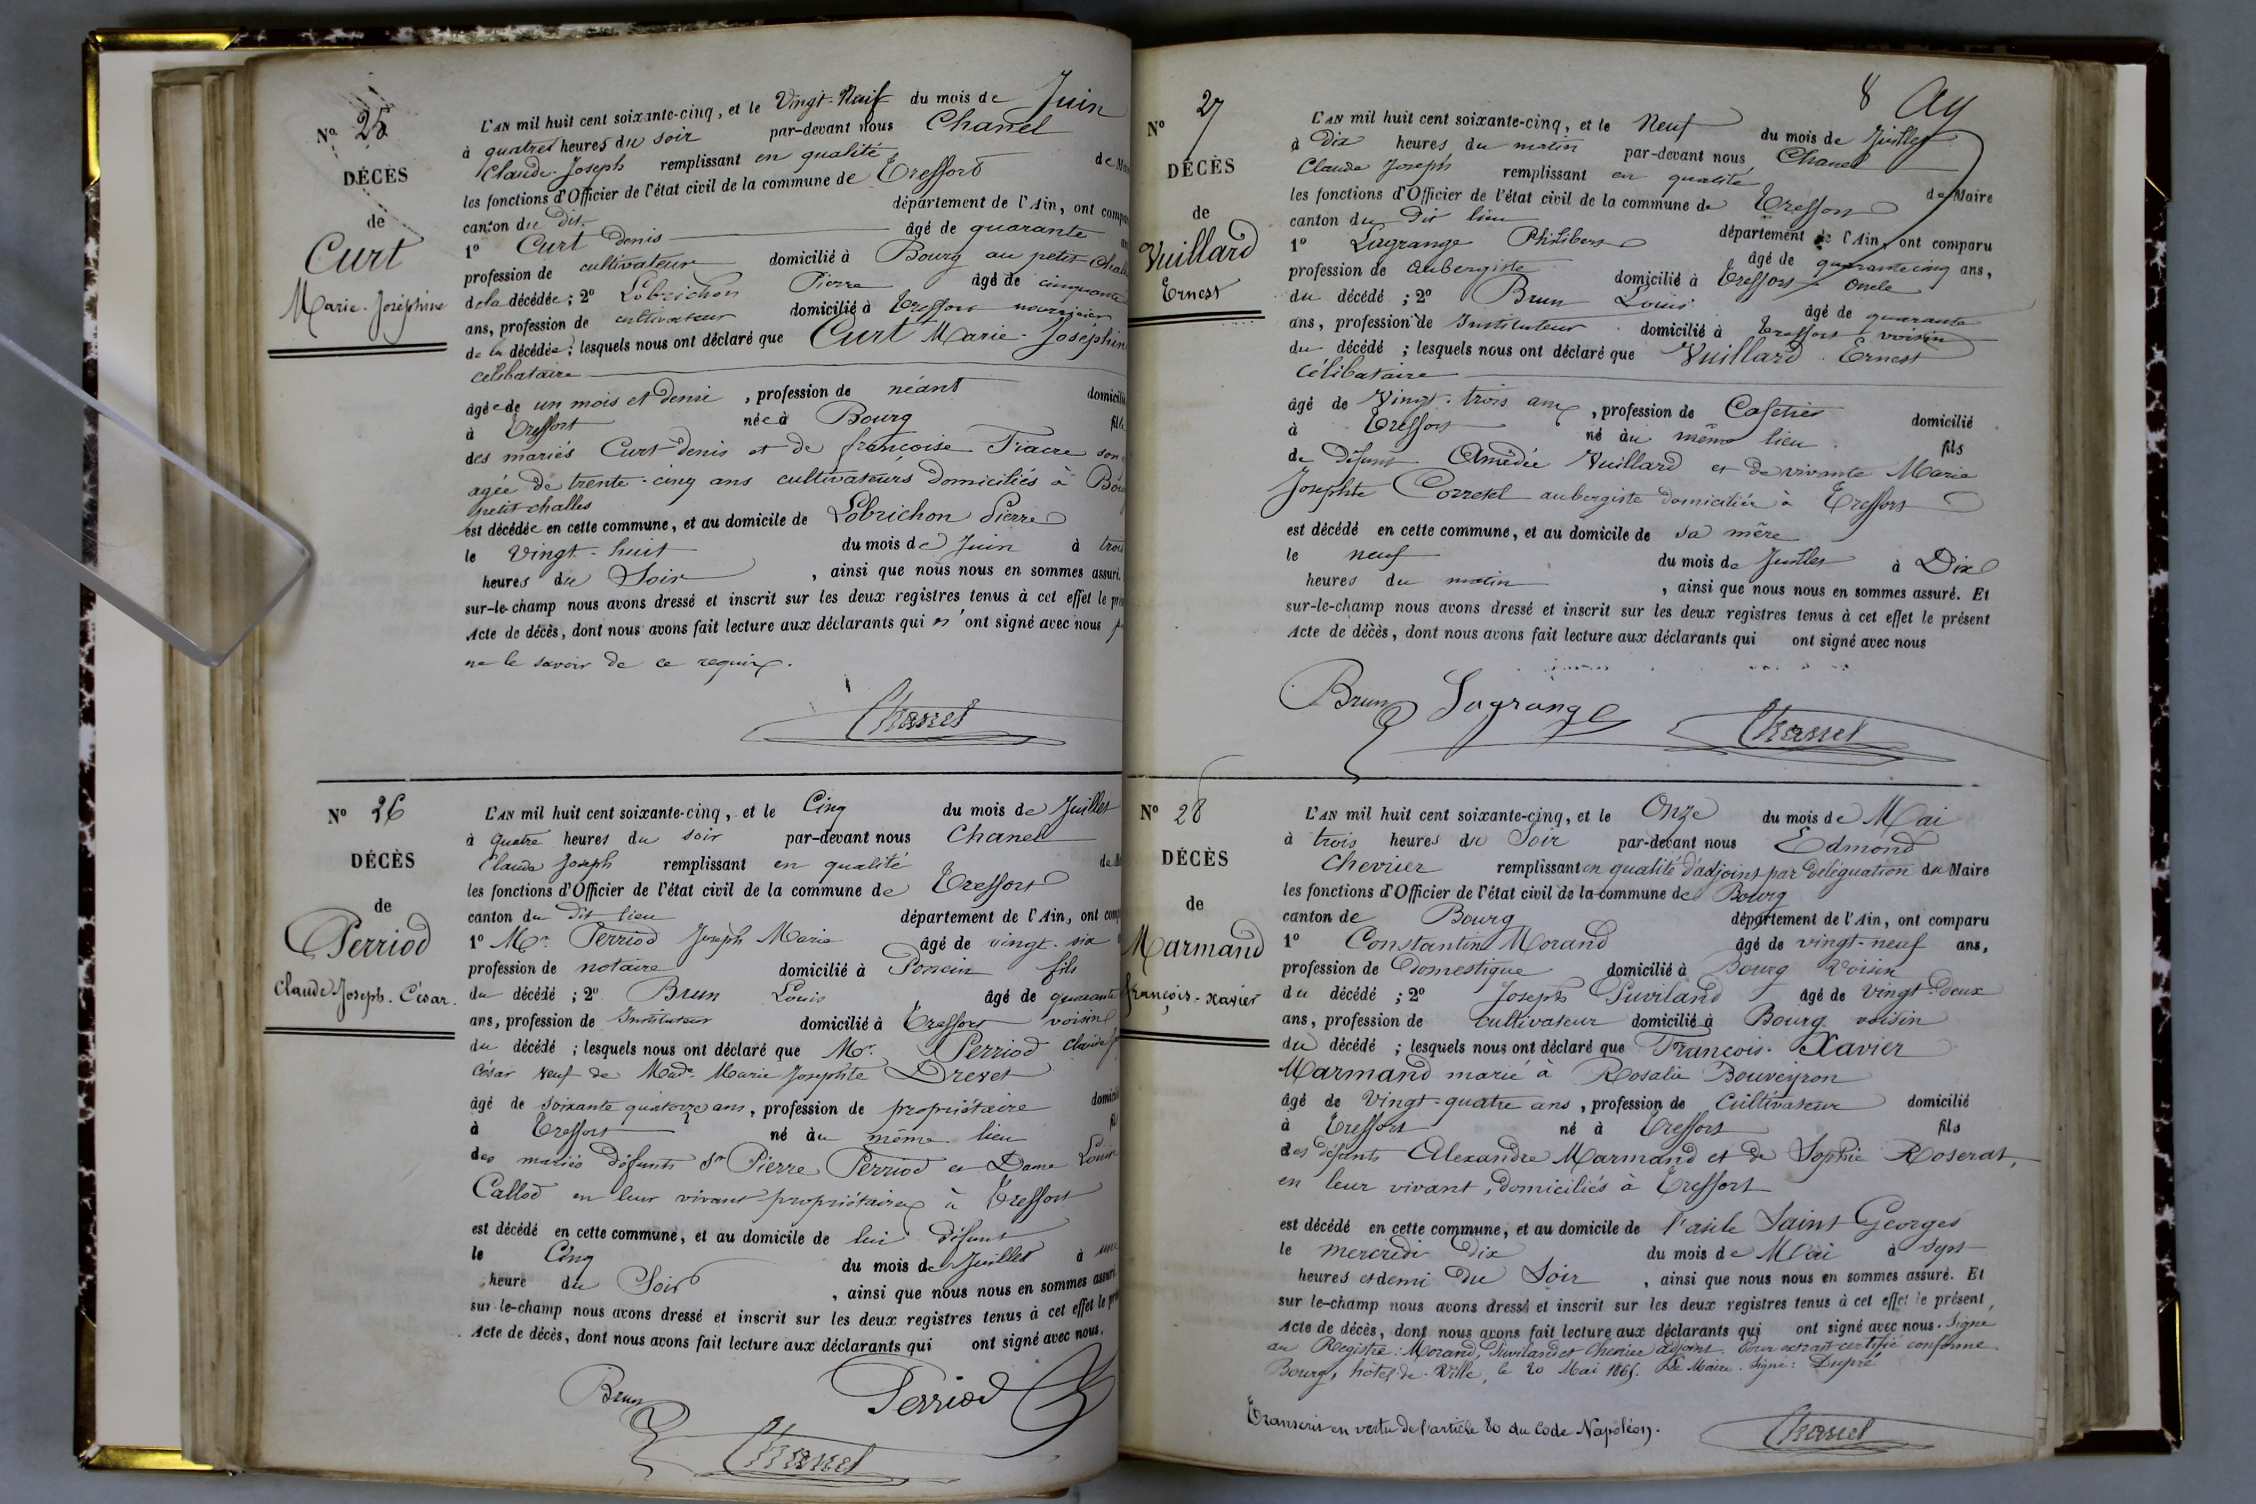 N° 25
DÉCÈS
de
Curt
Marie-Joséphine
L'AN mil huit cent soixante-cinq, et le Vingt-Neuf du mois de Juin
à quatre heures du soir par-devant nous Chanel
Claude-Joseph remplissant en qualité de
les fonctions d'Officier de l'état civil de la commune de Treffort
canton du dit département de l'Ain, ont
1° Curt Denis âgé de quarante
profession de cultivateur domicilié à Bourg au petit
de la décédée; 2° Lobrichon Pierre âgé de cinquante
ans, profession de cultivateur domicilié à Treffort nourricier
de la décédée; lesquels nous ont déclaré que Curt Marie-Joséphin
célibataire
âgée de un mois et demi, profession de néant
à Treffort née à Bourg
des mariés Curt Denis et de françoise Fiacre
agée de trente-cinq ans cultivateurs domiciliés à
petit challes
est décédée en cette commune, et au domicile de Lobrichon Pierre
le Vingt-huit du mois de Juin à
heures du Soir, ainsi que nous nous en sommes
sur-le-champ nous avons dressé et inscrit sur les deux registres tenus à cet effet le
Acte de décès, dont nous avons fait lecture aux déclarants qui n'ont signé avec nous
ne le savoir de ce requis.
Chanel
N° 26
DÉCÈS
de
Perriod
Claude-Joseph-César.
L'AN mil huit cent soixante-cinq, et le Cinq du mois de Juillet
à quatre heures du soir par-devant nous Chanel
Claude Joseph remplissant en qualité
les fonctions d'Officier de l'état civil de la commune de Treffort
canton du dit lieu département de l'Ain, ont
1° Mr. Perriod Joseph Marie âgé de vingt-six
profession de notaire domicilié à Poncin fils
du décédé; 2° Brun Louis âgé de quarante
ans, profession de Instituteur domicilié à Treffort voisin
du décédé; lesquels nous ont déclaré que Mr. Perriod
César veuf de Made. Marie Josephte Drevet
âgé de soixante quatorze ans, profession de propriétaire
à Treffort né au même lieu
des mariés défunts Sr Pierre Perriod et Dame Louise
Callod en leur vivant propriétaires à Treffort
est décédé en cette commune, et au domicile de lui défunt
le Cinq du mois de Juillet à une
heure du Soir, ainsi que nous nous en sommes
sur-le-champ nous avons dressé et inscrit sur les deux registres tenus à cet effet le
Acte de décès, dont nous avons fait lecture aux déclarants qui ont signé avec nous.
Brun Perriod
Chanel
8
N° 27
DÉCÈS
de
Vuillard
Ernest
L'AN mil huit cent soixante-cinq, et le Neuf du mois de Juillet
à Dix heures du matin par-devant nous Chanel
Claude Joseph remplissant en qualité de Maire
les fonctions d'Officier de l'état civil de la commune de Treffort
canton du dit lieu département de l'Ain, ont comparu
1° Lagrange Philibert âgé de quarante cinq ans,
profession de Aubergiste domicilié à Treffort oncle
du décédé; 2° Brun Louis âgé de quarante
ans, profession de Instituteur domicilié à Treffort voisin
du décédé; lesquels nous ont déclaré que Vuillard Ernest
célibataire
âgé de Vingt-trois ans, profession de Cafetier domicilié
à Treffort né au même lieu fils
de Défunt Amédée Vuillard et de vivante Marie
Josephte Corretel aubergiste domiciliée à Treffort
est décédé en cette commune, et au domicile de sa mère
le neuf du mois de Juillet à Dix
heures du matin, ainsi que nous nous en sommes assuré. Et
sur-le-champ nous avons dressé et inscrit sur les deux registres tenus à cet effet le présent
Acte de décès, dont nous avons fait lecture aux déclarants qui ont signé avec nous
Brun Lagrange Chanel
N° 28
DÉCÈS
de
Marmand
françois-xavier
L'AN mil huit cent soixante-cinq, et le Onze du mois de Mai
à trois heures du Soir par-devant nous Edmond
Chevrier remplissant en qualité d'adjoint par déléguation du Maire
les fonctions d'Officier de l'état civil de la commune de Bourg
canton de Bourg département de l'Ain, ont comparu
1° Constantin Morand âgé de vingt-neuf ans,
profession de Domestique domicilié à Bourg voisin
du décédé; 2° Joseph Puviland âgé de vingt-deux
ans, profession de cultivateur domicilié à Bourg voisin
du décédé; lesquels nous ont déclaré que François-Xavier
Marmand marié à Rosalie Bouveyron
âgé de Vingt-quatre ans, profession de Cultivateur domicilié
à Treffort né à Treffort fils
des défunts Alexandre Marmand et de Sophie Roserat,
en leur vivant, domiciliés à Treffort
est décédé en cette commune, et au domicile de l'asile Saint Georges
le mercredi Dix du mois de Mai à Sept
heures et demi du Soir, ainsi que nous nous en sommes assuré. Et
sur le-champ nous avons dressé et inscrit sur les deux registres tenus à cet effet le présent,
Acte de décès, dont nous avons fait lecture aux déclarants qui ont signé avec nous. Signé
au Registre: Morand, Puviland et Chevrier adjoint. Pour extrait certifié conforme
Bourg, hôtel-de-Ville, le 20 Mai 1865. Le Maire. Signé: Dupré
Transcrit en vertu de l'article 80 du Code Napoléon.
Chanel